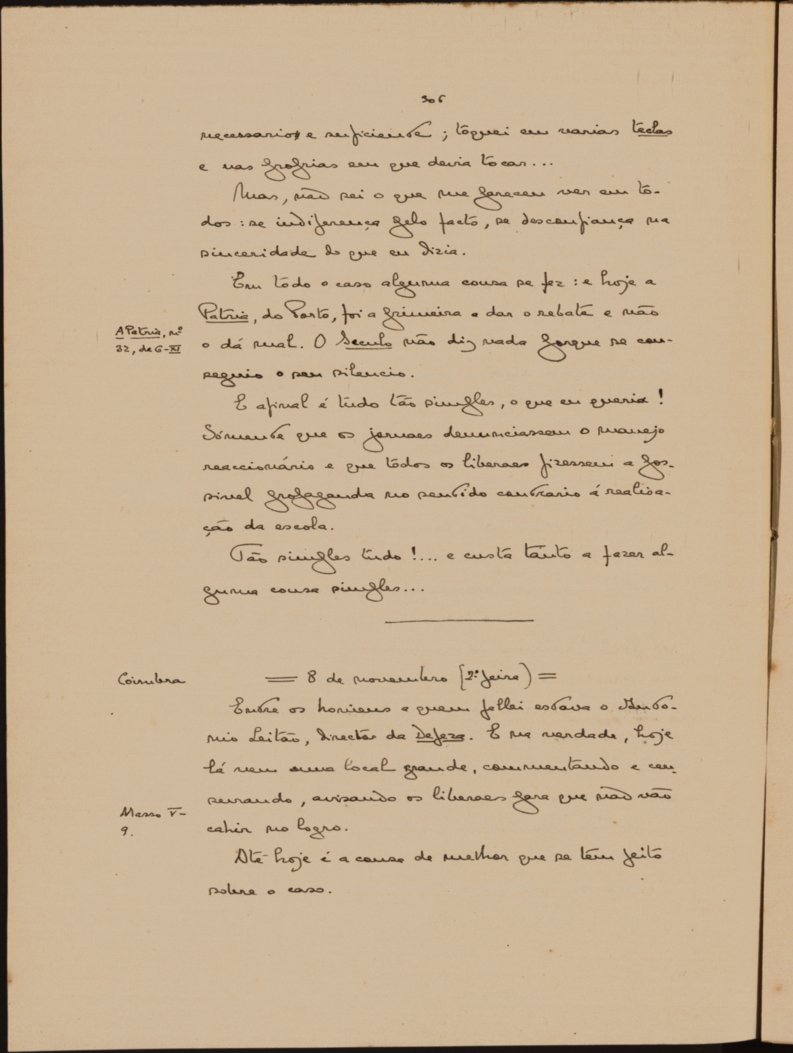 306
necessario e suficiente; tóquei em varias teclas
e nas proprias em que devia tocar...
Mas, não sei o que me parecem ver em tó-
dos: se indiferença pelo facto, se desconfiança na
sinceridade do que eu dizia.
Em tódo o caso alguma cousa se fez: e hoje a
Patria, do Porto, foi a primeira a dar o rebate e não
A Patria, nº
32, de 6-XI
o dá mal. O Seculo não diz nada porque se con-
seguio o seu silencio.
E afinal é tudo tão simples, o que eu queria!
Sómente que os jornaes denunciassem o manejo
reaccionário e que tódos os liberaes fizessem a pos-
sivel propaganda no sentido contrario á realisa-
ção da escola.
Tão simples tudo!... e custa tanto a fazer al-
guma cousa simples...
Coimbra
= 8 de novembro (2ª feira) =
Entre os homens a quem fallei estava o Anto-
nio Leitão, director da Defeza. E na verdade, hoje
lá vem uma local grande, commentando e cen-
surando, avisando os liberaes para que não vão
Masso V-
9.
cahir no logro.
Até hoje é a cousa de melhor que se tem feito
sobre o caso.